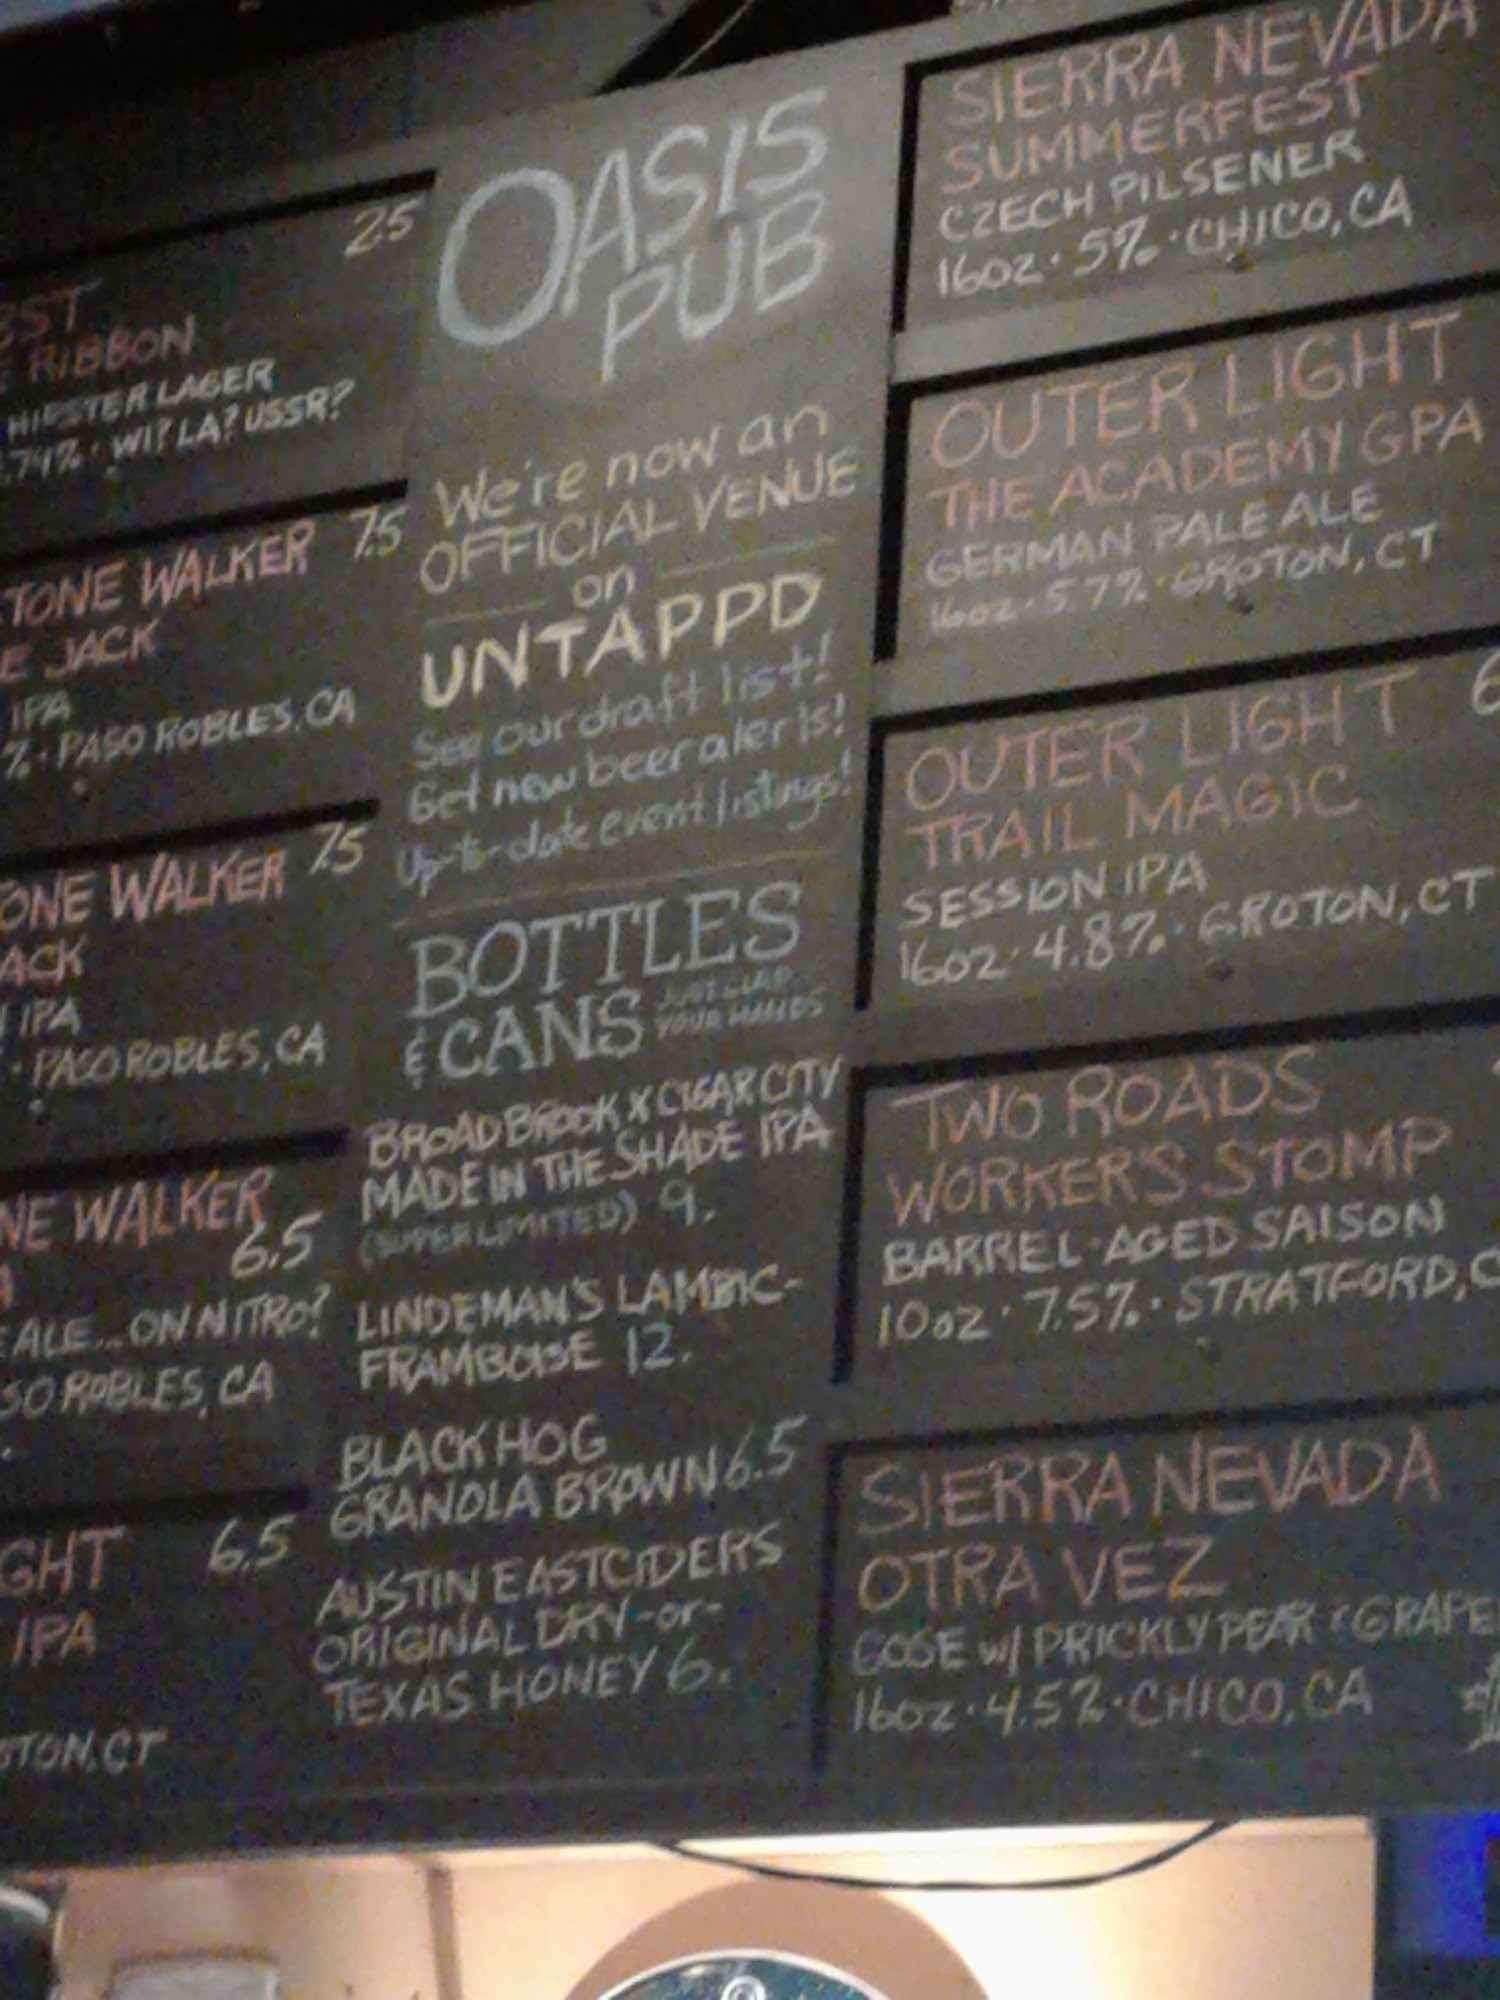 25
RIBBON
HIPSTER LAGER
.74% · WI? LA? USSR?
TONE WALKER 7.5
E JACK
IPA
% · PASO ROBLES, CA
ONE WALKER 7.5
ACK
IPA
· PASO ROBLES, CA
NE WALKER
6.5
ALE... ON NITRO?
SO ROBLES, CA
GHT 6.5
IPA
OTON, CT
OASIS
PUB
We're now an
OFFICIAL VENUE
on
UNTAPPD
See our draft list!
Get new beer alerts!
Up-to-date event listings!
BOTTLES
& CANS JUST CLAP
YOUR HANDS
BROAD BROOK X CIGAR CITY
MADE IN THE SHADE IPA
(SUPER LIMITED) 9.
LINDEMAN'S LAMBIC-
FRAMBOISE 12.
BLACK HOG
GRANOLA BROWN 6.5
AUSTIN EASTCIDERS
ORIGINAL DRY -or-
TEXAS HONEY 6.
SIERRA NEVADA
SUMMERFEST
CZECH PILSENER
16oz · 5% · CHICO, CA
OUTER LIGHT
THE ACADEMY GPA
GERMAN PALE ALE
16oz · 5.7% · GROTON, CT
OUTER LIGHT
TRAIL MAGIC
SESSION IPA
16oz · 4.8% · GROTON, CT
TWO ROADS
WORKER'S STOMP
BARREL-AGED SAISON
10oz · 7.5% · STRATFORD, C
SIERRA NEVADA
OTRA VEZ
GOSE w/ PRICKLY PEAR & GRAPE
16oz · 4.5% · CHICO, CA